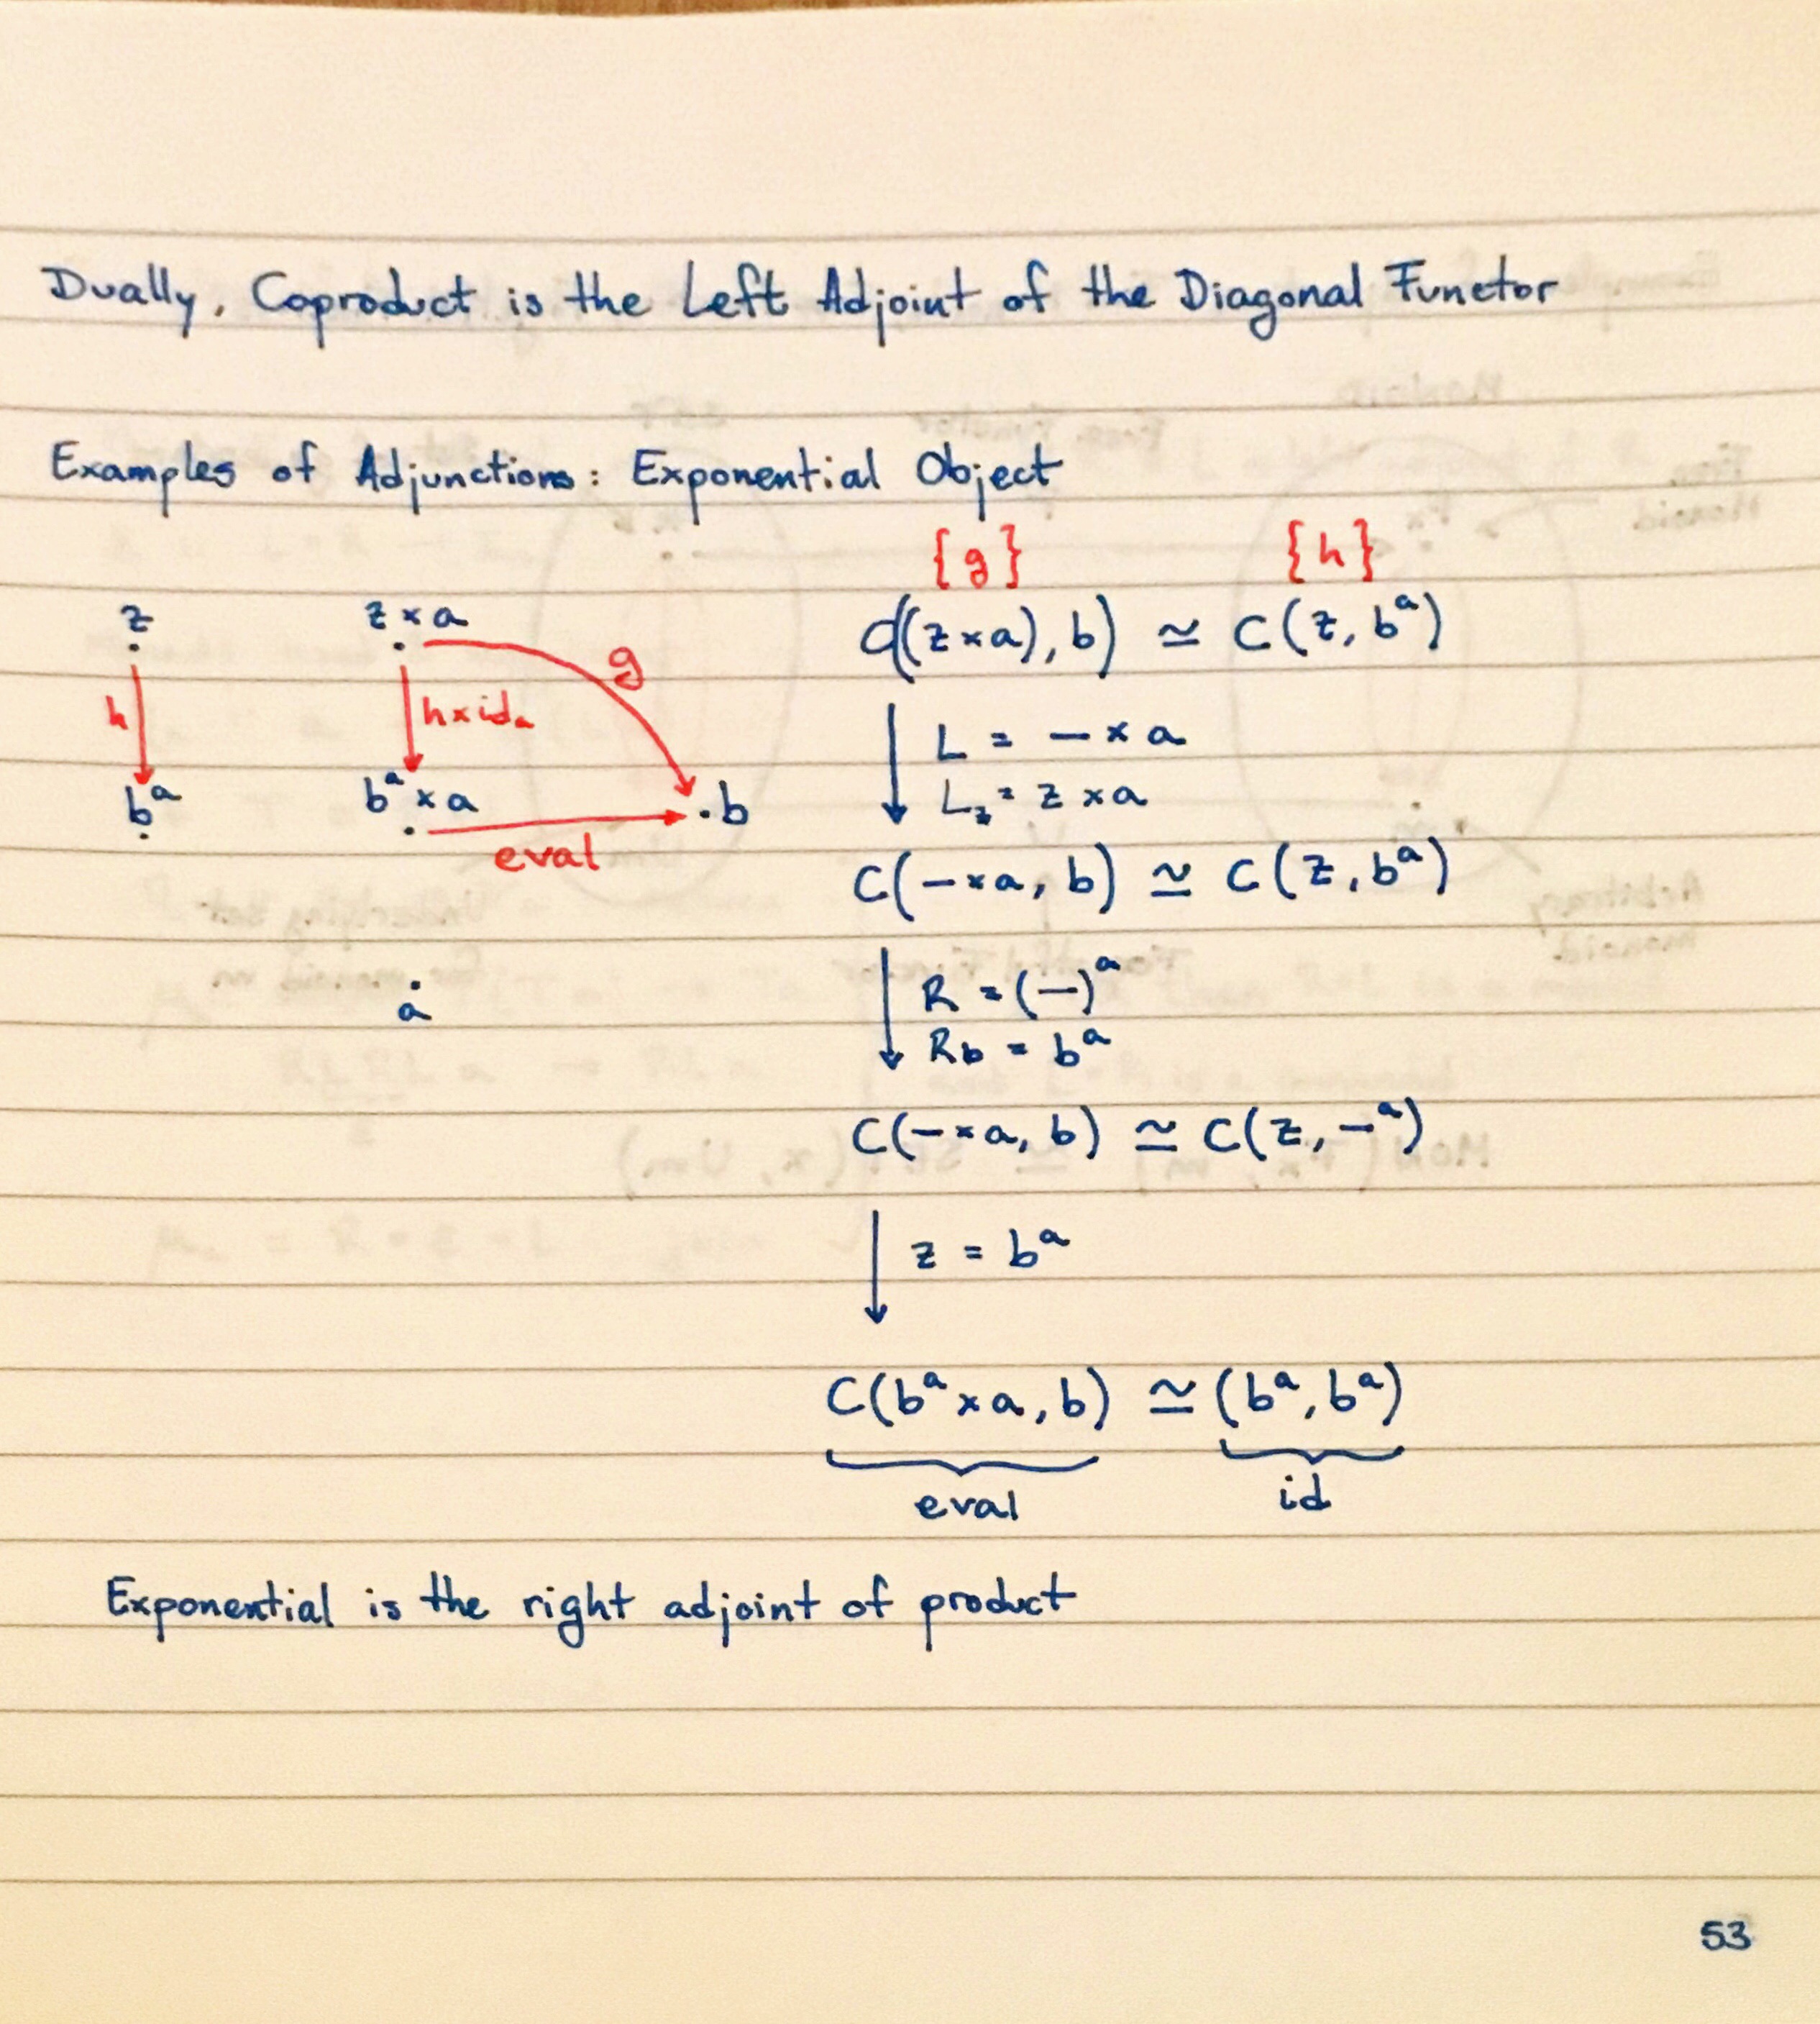 Dually, Coproduct is the Left Adjoint of the Diagonal Functor
Examples of Adjunctions: Exponential Object
{g} {h}
z z × a C((z×a), b) ≃ C(z, bᵃ)
g
h h×idₐ L = — × a
bᵃ bᵃ × a .b L_z = z × a
eval
C(—×a, b) ≃ C(z, bᵃ)
a R = (—)ᵃ
Rb = bᵃ
C(—×a, b) ≃ C(z, —ᵃ)
z = bᵃ
C(bᵃ×a, b) ≃ (bᵃ, bᵃ)
eval id
Exponential is the right adjoint of product
53